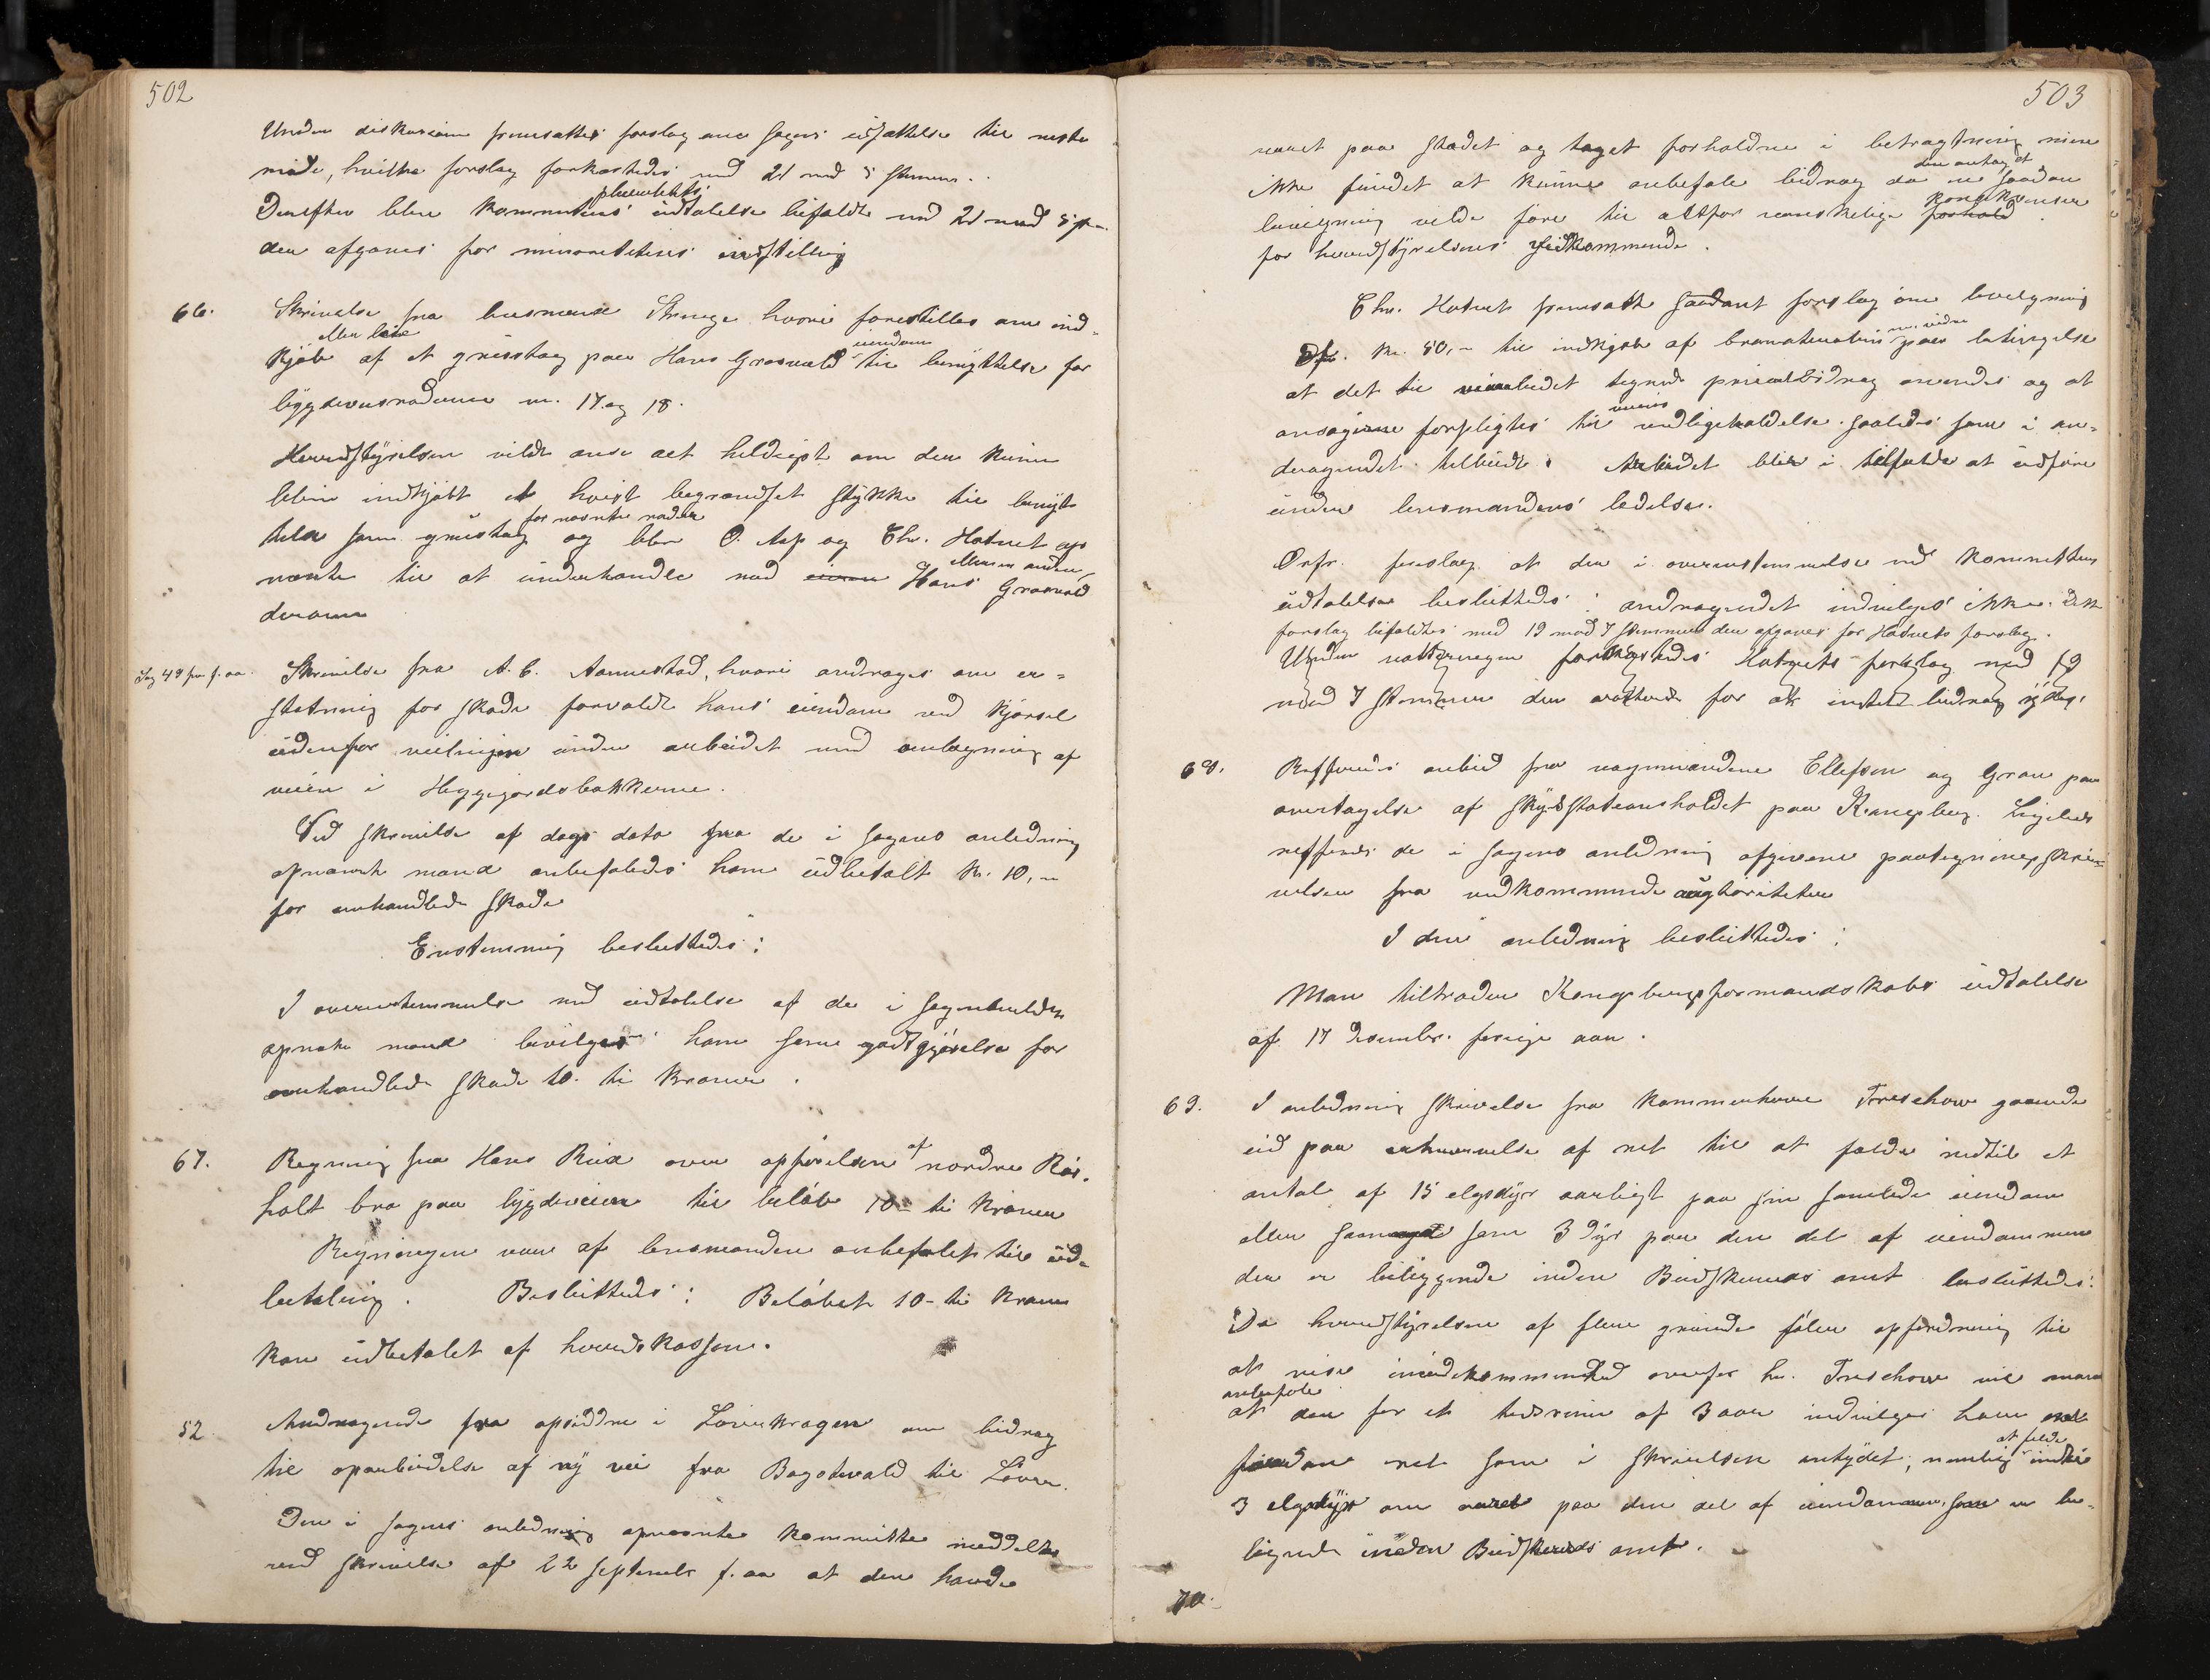 502
Under diskusionen fremsattes forslag om sagens udsættelse til neste
møde, hvilke forslag forkastedes med 21 mod 5 stemmer.
Derefter blev kommiteens pluralitets udtalelse bifaldt med 21 mod 5 st.
der afgaves for minoritetens indstilling
66. Skrivelse fra lensmand Strunge hvori forestilles om ind-
kjøb eller leie af et grustag paa Hans Grosvold eiendom til benyttelse for
bygdeveisroderne no. 17 og 18.
Herredstyrelsen vilde anse det heldigst om der kunne
blive indkjøbt et høist begrændset stykke til benyt-
telse som grustag for nævnte roder og blev O. Asp og Chr. Hotvet op-
nævnte til at underhandle med Hans Grosvold
derom
Sag 49 fra f. aa. Skrivelse fra A. C. Aannestad, hvori andrages om er-
statning for skade forvoldt hans eiendom ved kjørsel
udenfor veilinjen under arbeidet med omlægning af
veien i Heggejordsbakkerne.
Ved skrivelse af dags dato fra de i sagens anledning
opnævnte mænd anbefaledes ham udbetalt kr. 10,-
for omhandlede skade
Enstemmig besluttedes:
I overenstemmelse med udtalelse af de i sagen
opnævte mænd bevilges ham som godtgjørelse for
omhandlede skade 10. ti kroner.
67. Regning fra Hans Ruud over opførelsen af nordre Røs-
holt bro paa bygdeveien til beløb 10- ti kroner
Regningen var af lensmanden anbefalet til ud-
betaling. Besluttedes: Beløbet 10- ti kroner
kan udbetalet af herredskassen.
52. Andragende fra opsiddere i Løverkragen om bidrag
til oparbeidelse af ny vei fra Bagotvald til Løver.
Den i sagens anledning opnævnte kommitte meddelte
ved skrivelse af 22 septembr f. aa at den havde
503
været paa stedet og taget forholdene i betragtning men
ikke fundet at kunne anbefale bidrag da den antog at en saadan
bevilgning vilde føre til altfor vanskelige konsekvenser
for herredstyrelsens vedkommende.
Chr. Hotvet fremsatte saadant forslag om bevilgning
kr. 50,- til indkjøb af paa betingelse
at det til veiarbeidet tegnede privatbidrag anvendes og at
ansøgerne forpligtes til veiens vedligeholdelse saaledes som i an-
dragendet tilbudt. Arbeidet blir i tilfælde at udføre
under lensmandens ledelse.
Ordf. foreslag at der i overenstemmelse med kommitteens
udtalelse besluttedes: andragendet indvilges ikke. Dette
forslag bifaldtes med 19 mod 7 stemmer der afgaves for Hotvets forslag.
Under voteringen forkastedes Hotvets forslag med 19
mod 7 stemmer der voterede for at intet bidrag ydes.
68. Refferedes anbud fra vognmændene Ellefsen og Gran paa
overtagelse af skydsstationsholdet paa Kongsberg. Ligeledes
refferedes de i sagens anledning afgivne paategningsskri-
velser fra vedkommende aughoriteter
I den anledning besluttedes:
Man tiltræder Kongsbergs formandskabs udtalelse
af 17 desembr. forrige aar.
69. I anledning skrivelse fra kammerherre Treschow gaaende
ud paa erhvervelse af ret til at fælde indtil et
antal af 15 elgsdyr aarligt paa sin samlede eiendom
eller som 3 dyr paa den del af eiendommen
der er beliggende inden Buskeruds amt besluttedes:
Da herredstyrelsen af flere grunde føler opfordring til
at vise imødekommenhed overfor hr. Treschow vil man
anbefale at der for et tidsrum af 3 aar indvilges ham en
saadan ret som i skrivelsen antydet, nemlig at fælde indtil
3 elgsdyr om aaret paa den del af eiendommen som er be-
liggende inden Buskeruds amt.
70.